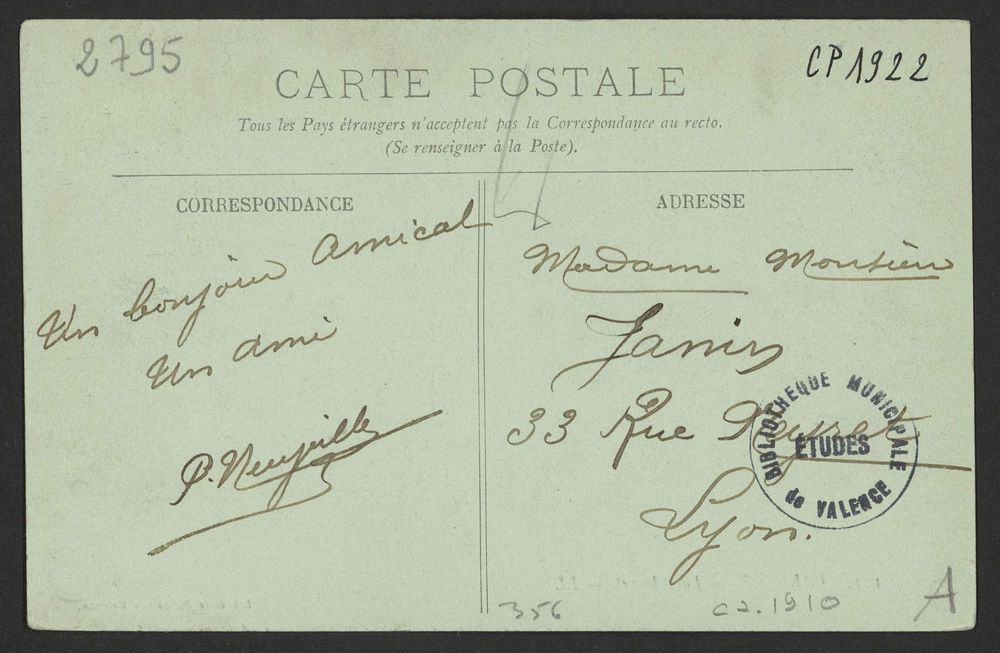 2795
CP 1922
CARTE POSTALE
Tous les Pays étrangers n'acceptent pas la Correspondance au recto.
(Se renseigner à la Poste).
CORRESPONDANCE
Un bonjour Amical
Un ami
P. Neuville
ADRESSE
Madame Monsieur
33 Rue Neyret
Lyon.
BIBLIOTHEQUE MUNICIPALE
ÉTUDES
de VALENCE
356
ca. 1910
A